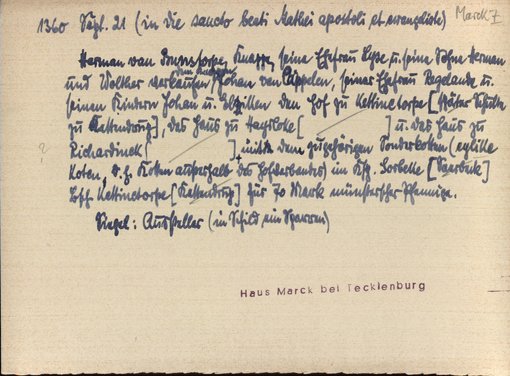 1360 Sept. 21 (in die sancto beati Mathei apostoli et ewangeliste) Marck Z
Herman van Drunstorpe, Knappe, seine Ehefrau Lyse u. seine Söhne Herman
und Wolther verkaufen dem Knappen Johan van Cappelen, seiner Ehefrau Regelande u.
seinen Kindern Johan u. den Hof zu Kettinctorpe [später Schulte
zu Kettendrup], das Haus zu Haghloke [ ] u. das Haus zu
? Richardinck [ ], mit dem zugehörigen Sonderkoten (eylike
Koten, d. h. Koten ausserhalb des Hofverbandes) im Ksp. Sorbeke [Saerbeck]
Bsch. Kettinctorpe [Kettendrup] für 70 Mark münsterscher Pfennige.
Siegel: Aussteller (im Schild ein Sparren)
Haus Marck bei Tecklenburg